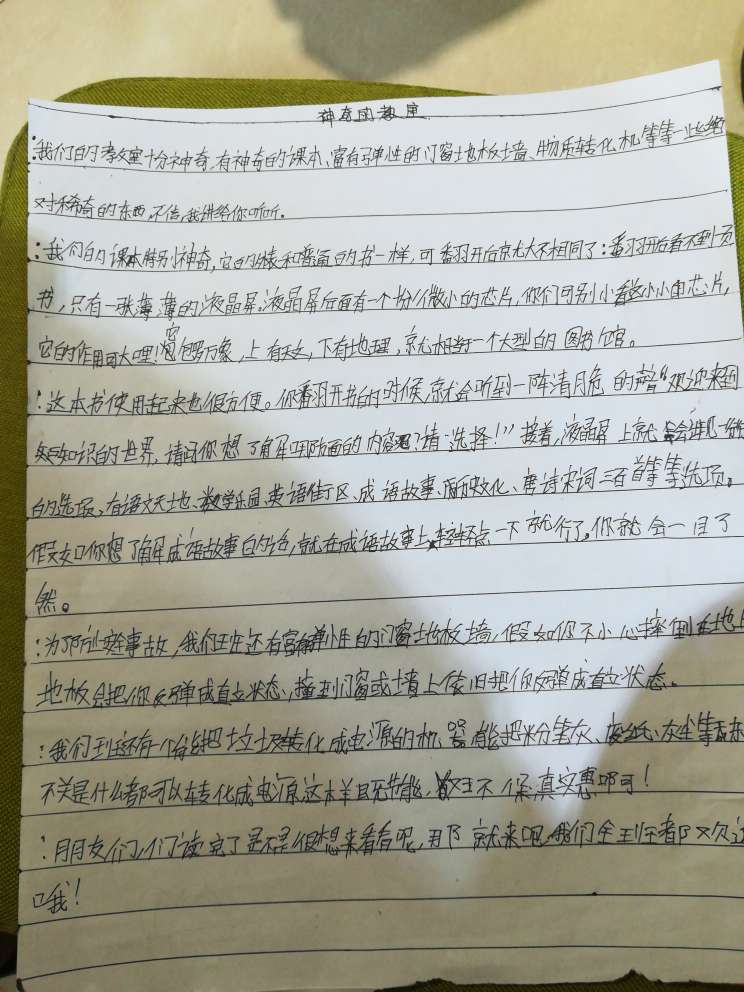 神奇的教室
我们的教室十分神奇,有神奇的课本、富有弹性的门窗地板墙、物质转化机等等一些绝
对稀奇的东西,不信,我讲给你听听。
我们的课本特别神奇,它的外表和普通的书一样,可翻开后就大不相同了:翻开后看不到页
书,只有一张薄薄的液晶屏。液晶屏后面有一个十分微小的芯片,你们可别小看这小小的芯片,
它的作用可大哩!它包罗万象,上有天文,下有地理,就相当一个大型的图书馆。
这本书使用起来也很方便。你翻开书的时候,就会听到一阵清脆的声音“欢迎来到
知识的世界,请问你想了解哪方面的内容呢?请选择!”接着,液晶屏上就会出现一些
的选项。有语文天地、数学乐园、英语街区、成语故事、历史文化、唐诗宋词三百首等等选项。
假如你想了解成语故事的话,就在成语故事上轻轻点一下就行了。你就会一目了
然。
为了防止意外事故,我们班还有富有弹性的门窗地板墙,假如你不小心摔倒在地上
地板会把你反弹成直立状态,撞到门窗或墙上依旧把你反弹成直立状态。
我们班还有一个能把垃圾转化成电源的机器,能把粉笔灰、废纸、灰尘等
不关是什么都可以转化成电源这样且节能,又环保真实惠啊!
朋友们,你们读完了是不是很想来看看呢,那就来吧,我们全班都欢迎
哦!